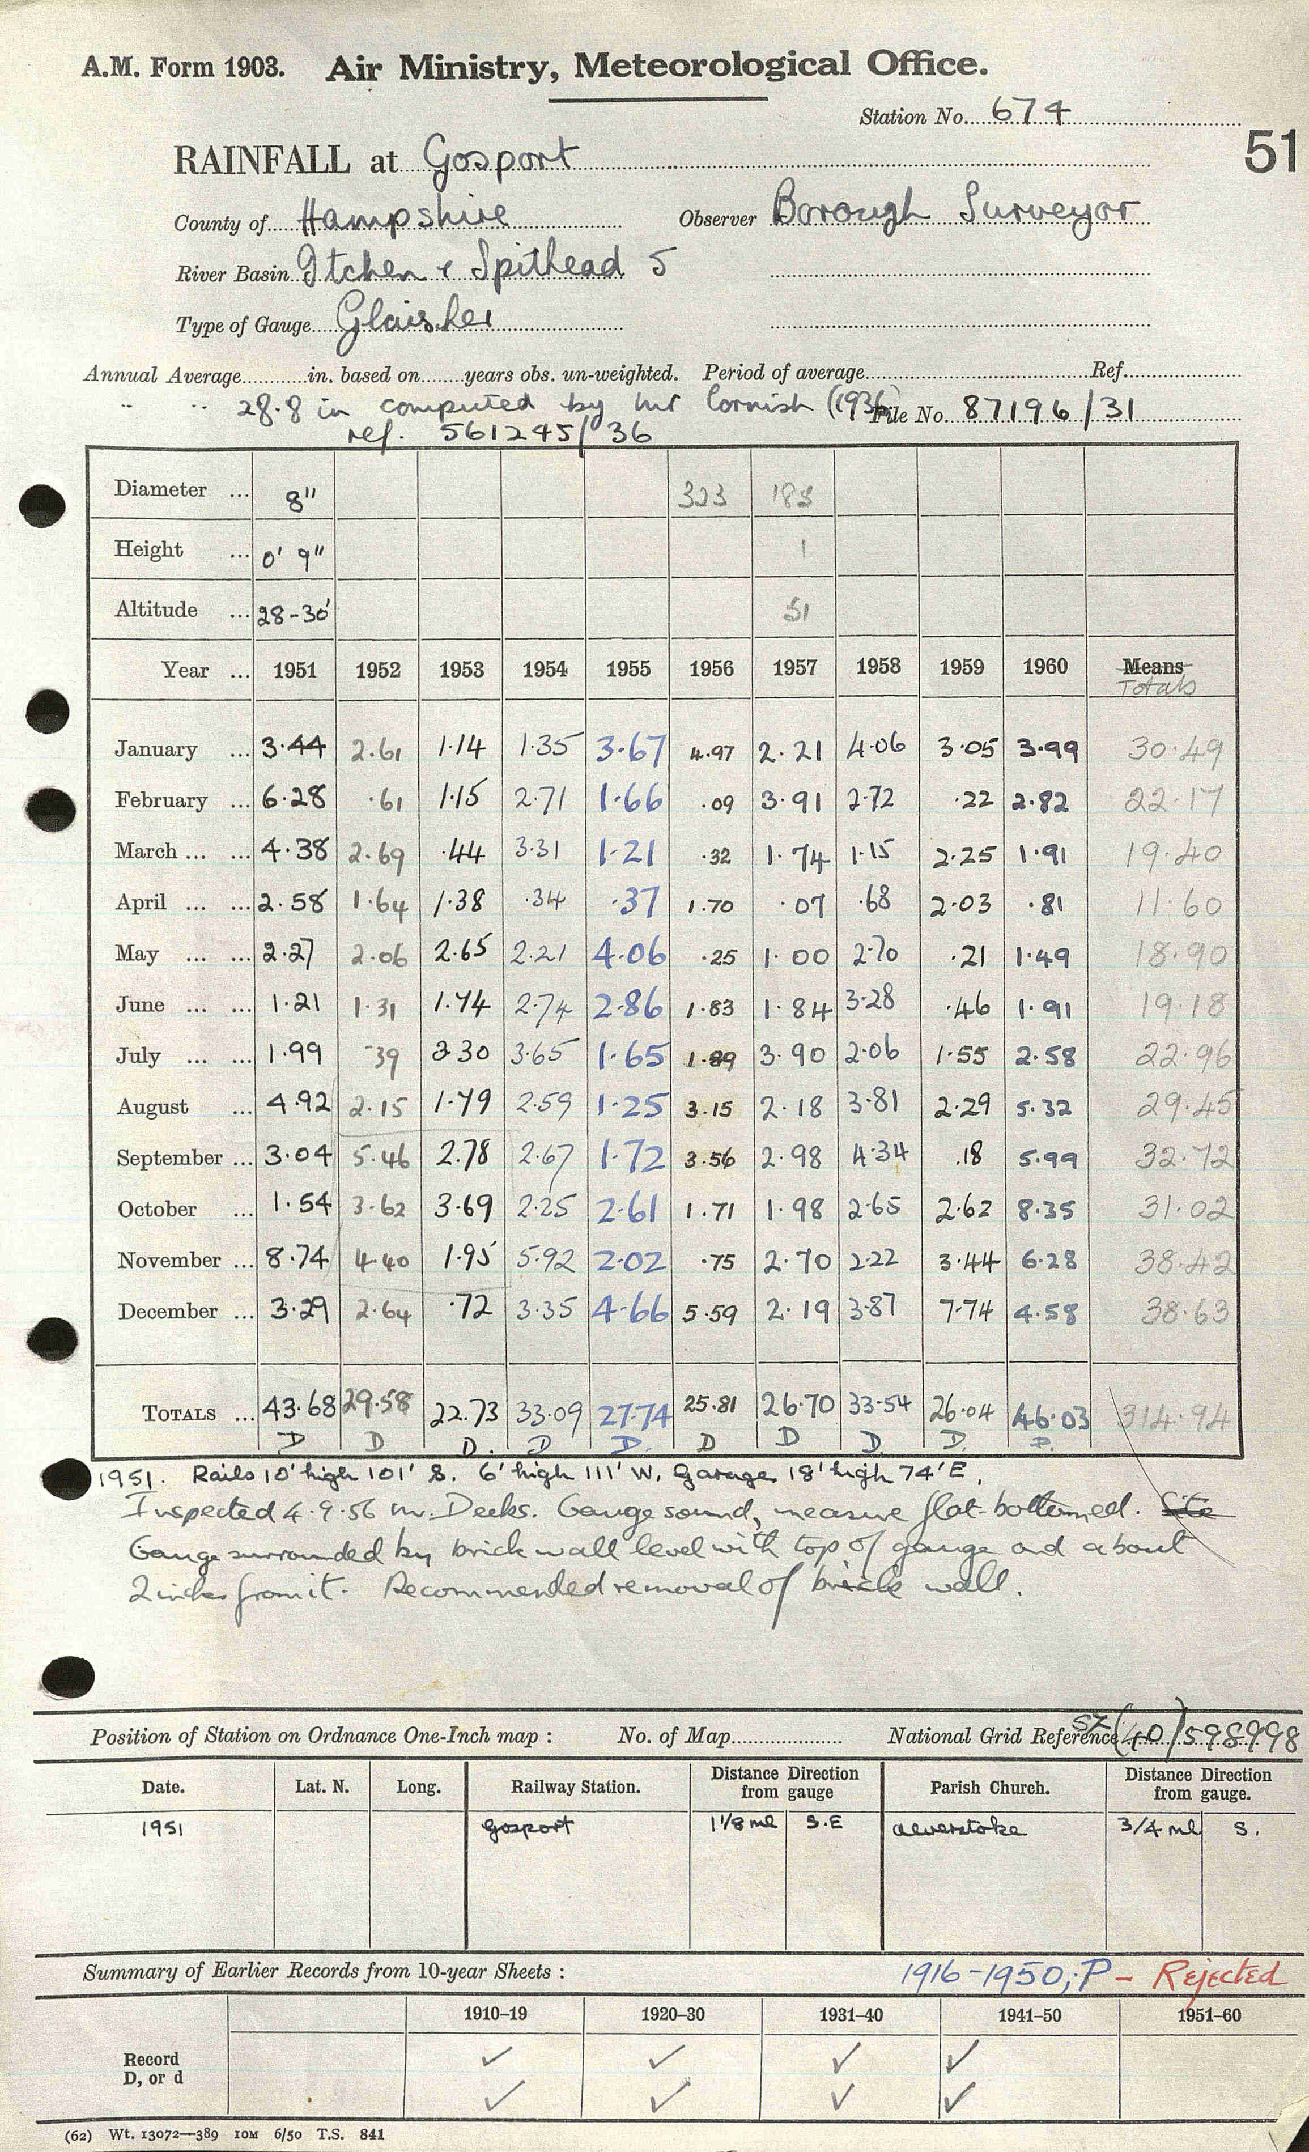 A.M. Form 1903. Air Ministry, Meteorological Office.
Station No. 674
51
RAINFALL at Gosport
County of Hampshire Observer Borough Surveyor
River Basin Itchen & Spithead 5
Type of Gauge Glaisher
Annual Average in. based on years obs. un-weighted. Period of average Ref.
" " 28.8 in computed by Mr Cornish (1936) File No. 87196/31
ref. 561245/36
Diameter ... 8" 323 183
Height ... 0' 9" 1
Altitude ... 28-30' 51
Year ... 1951 1952 1953 1954 1955 1956 1957 1958 1959 1960 Means
Totals
January ... 3.44 2.61 1.14 1.35 3.67 4.97 2.21 4.06 3.05 3.99 30.49
February ... 6.28 .61 1.15 2.71 1.66 .09 3.91 2.72 .22 2.82 22.17
March ... ... 4.38 2.69 .44 3.31 1.21 .32 1.74 1.15 2.25 1.91 19.40
April ... ... 2.58 1.64 1.38 .34 .37 1.70 .07 .68 2.03 .81 11.60
May ... ... 2.27 2.06 2.65 2.21 4.06 .25 1.00 2.70 .21 1.49 18.90
June ... ... 1.21 1.31 1.74 2.74 2.86 1.83 1.84 3.28 .46 1.91 19.18
July ... ... 1.99 .39 3.30 3.65 1.65 1.89 3.90 2.06 1.55 2.58 22.96
August ... 4.92 2.15 1.79 2.59 1.25 3.15 2.18 3.81 2.29 5.32 29.45
September ... 3.04 5.46 2.78 2.67 1.72 3.56 2.98 4.34 .18 5.99 32.72
October ... 1.54 3.62 3.69 2.25 2.61 1.71 1.98 2.65 2.62 8.35 31.02
November ... 8.74 4.40 1.95 5.92 2.02 .75 2.70 2.22 3.44 6.28 38.42
December ... 3.29 2.64 .72 3.35 4.66 5.59 2.19 3.87 7.74 4.58 38.63
TOTALS ... 43.68 29.58 22.73 33.09 27.74 25.81 26.70 33.54 26.04 46.03 314.94
D D D. D D. D D D. D. D.
1951. Rails 10' high 101' S. 6' high 111' W. Garage 18' high 74' E.
Inspected 4.9.56 Mr. Deeks. Gauge sound, measure flat-bottomed. Site
Gauge surrounded by brick wall level with top of gauge and about
2 inches from it. Recommended removal of brick wall.
Position of Station on Ordnance One-Inch map : No. of Map National Grid Reference SZ (40) 598998
Date. Lat. N. Long. Railway Station. Distance from gauge Direction Parish Church. Distance from gauge. Direction
1951 Gosport 1 1/8 ml S.E Alverstoke 3/4 ml S.
Summary of Earlier Records from 10-year Sheets : 1916-1950; P - Rejected
1910–19 1920–30 1931–40 1941–50 1951–60
Record ✓ ✓ ✓ ✓
D, or d ✓ ✓ ✓ ✓
(62) Wt. 13072—389 10M 6/50 T.S. 841